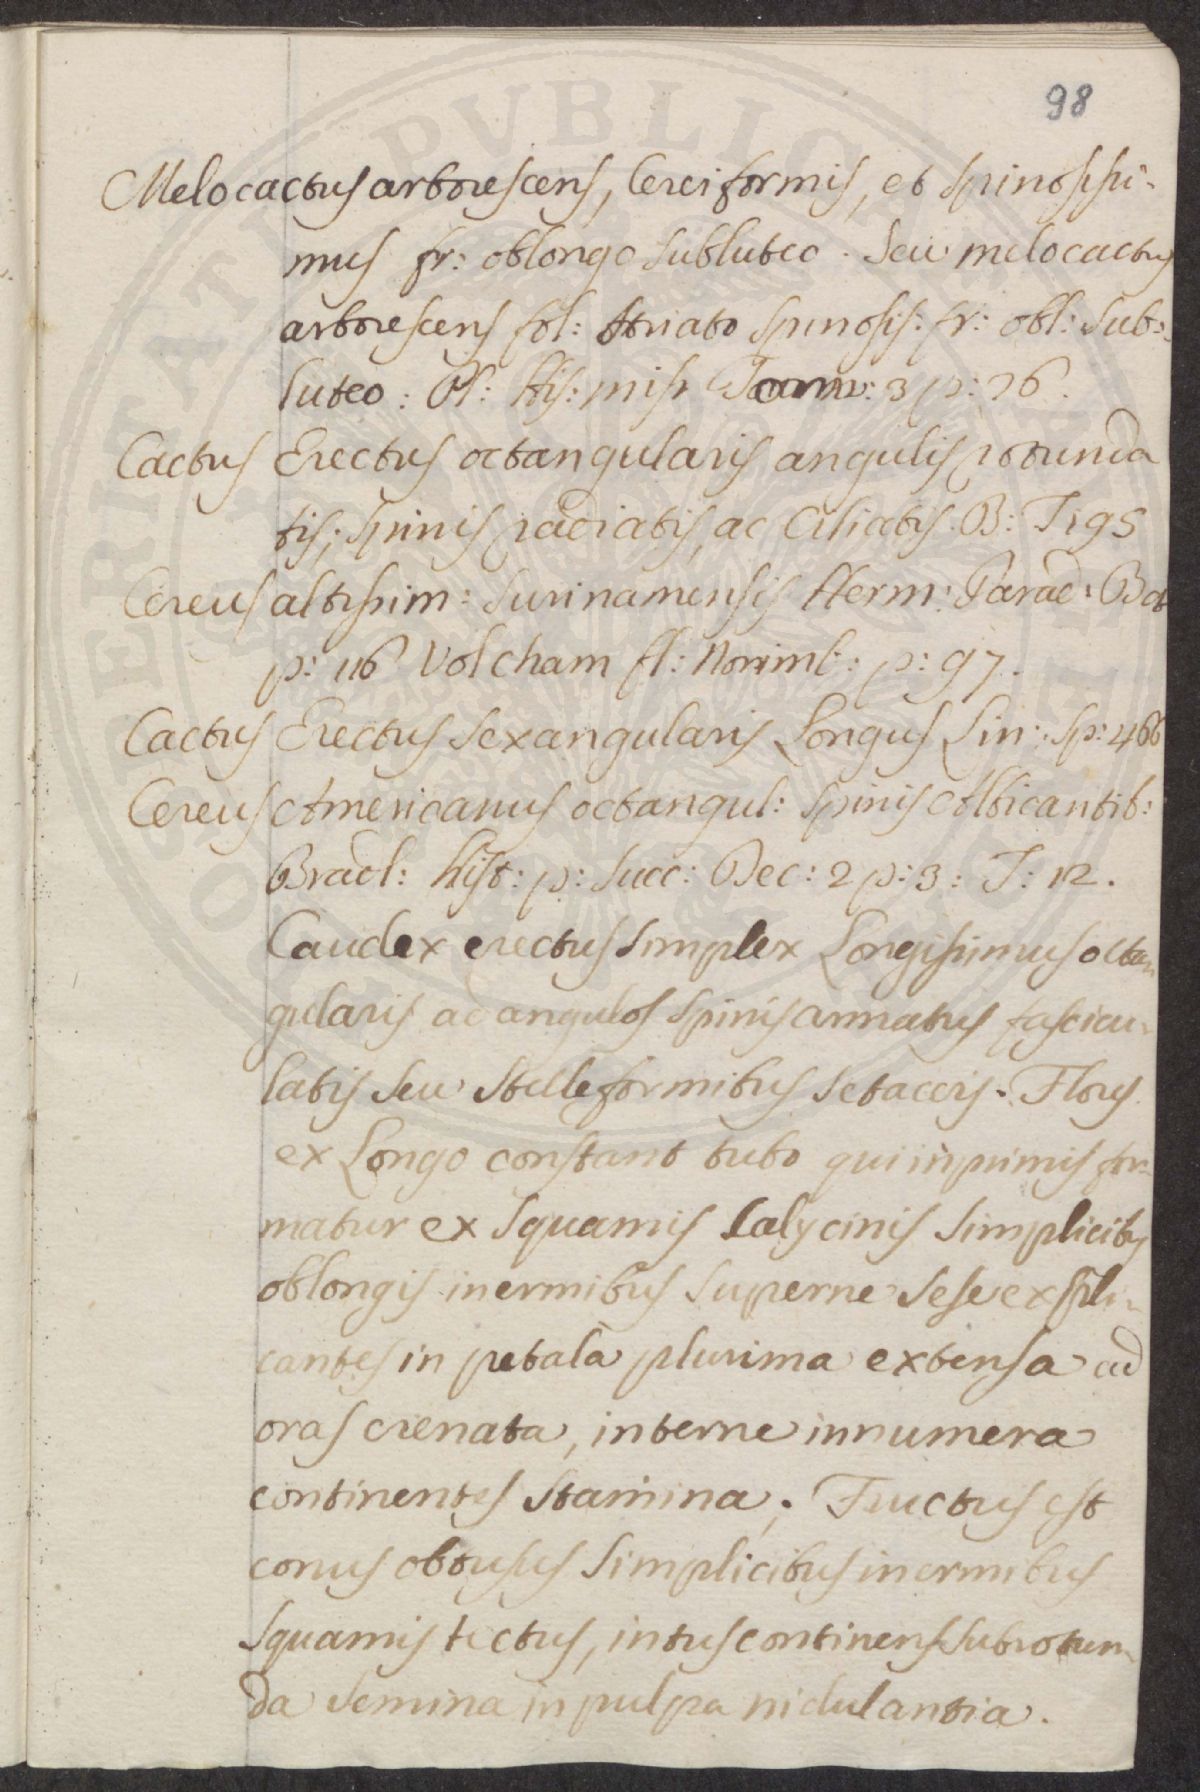 98
Melocactus arborescens, Cereiformis, et spinosissi-
mus fr: oblongo subluteo. Seu melocactus
arborescens fol: striato spinosis: fr: obl: sub:
luteo: Pl: His: miss 3 p: 26.
Cactus Erectus octangularis angulis rotunda
tis; spinis radiatis, ac Ciliatis. B: T 195
Cereus altissim: Surinamensis Herm: Parad: Bat
p: 116 Volcham fl: Norimb: p: 97.
Cactus Erectus sexangularis Longus Lin: Sp: 466
Cereus Americanus octangul: spinis Albicantib:
Bradl: hist: p: succ: Dec: 2 p: 3: T: 12.
Caudex erectus simplex Longissimus octan
gularis ad angulos spinis armatus fascicu-
latis seu stelleformibus setaceis. Flores
ex Longo constant tubo qui inprimis for-
matur ex squamis Calycinis simplicibus
oblongis inermibus superne sese expli-
cantes in petala plurima extensa ad
oras crenata, interne innumera
continentes stamina; Fructus est
conus obtusus simplicibus inermibus
squamis tectus, intus continens subrotun-
da semina in pulpa nidulantia.